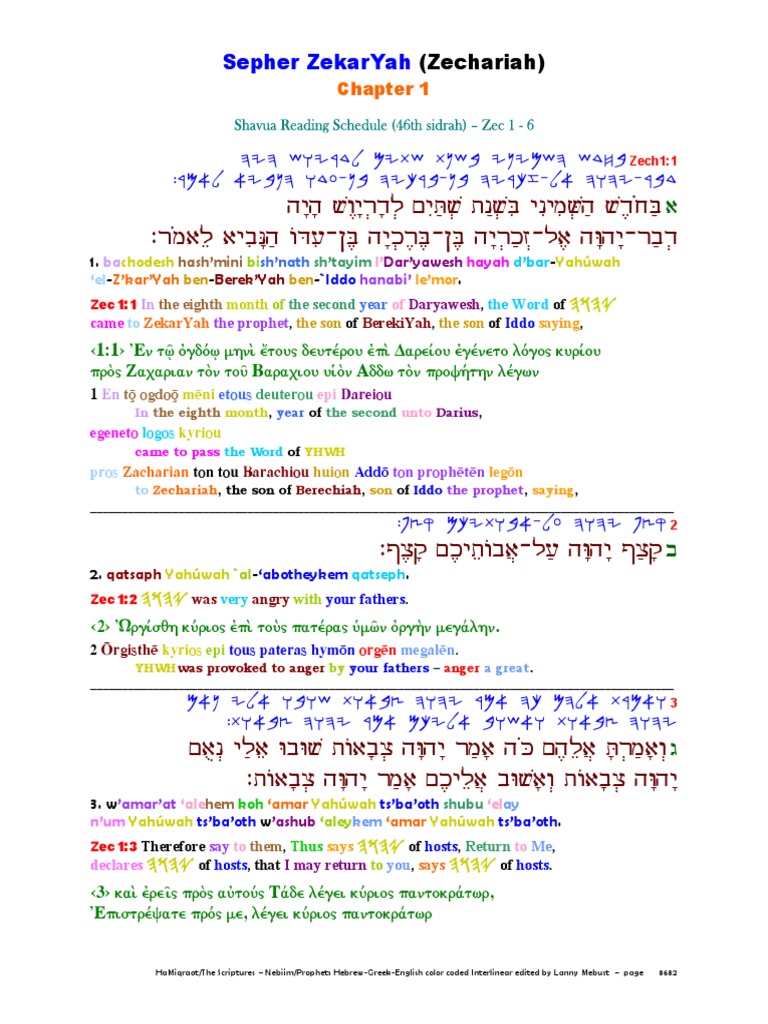 Sepher ZekarYah (Zechariah)
Chapter 1
Shavua Reading Schedule (46th sidrah) – Zec 1 - 6
Zech1:1 𐤁𐤇𐤃𐤔 𐤄𐤔𐤌𐤉𐤍𐤉 𐤁𐤔𐤍𐤕 𐤔𐤕𐤉𐤌 𐤋𐤃𐤓𐤉𐤅𐤔 𐤄𐤉𐤄
𐤃𐤁𐤓-𐤉𐤄𐤅𐤄 𐤀𐤋-𐤆𐤊𐤓𐤉𐤄 𐤁𐤍-𐤁𐤓𐤊𐤉𐤄 𐤁𐤍-𐤏𐤃𐤅 𐤄𐤍𐤁𐤉𐤀 𐤋𐤀𐤌𐤓:
א בַּחֹדֶשׁ הַשְּׁמִינִי בִּשְׁנַת שְׁתַּיִם לְדָרְיָוֶשׁ הָיָה
דְבַר־יְהוָּה אֶל־זְכַרְיָה בֶּן־בֶּרֶכְיָה בֶּן־עִדּוֹ הַנָּבִיא לֵאמֹר׃
1. bachodesh hash'mini bish'nath sh'tayim l'Dar'yawesh hayah d'bar-Yahúwah
‘el-Z'kar'Yah ben-Berek'Yah ben-`Iddo hanabi' le'mor.
Zec 1:1 In the eighth month of the second year of Daryawesh, the Word of 𐤉𐤄𐤅𐤄
came to ZekarYah the prophet, the son of BerekiYah, the son of Iddo saying,
‹1:1› Ἐν τῷ ὀγδόῳ μηνὶ ἔτους δευτέρου ἐπὶ Δαρείου ἐγένετο λόγος κυρίου
πρὸς Ζαχαριαν τὸν τοῦ Βαραχιου υἱὸν Αδδω τὸν προφήτην λέγων
1 En tō̧ ogdoō̧ mēni etous deuterou epi Dareiou
In the eighth month, year of the second unto Darius,
egeneto logos kyriou
came to pass the Word of YHWH
pros Zacharian ton tou Barachiou huion Addō ton prophētēn legōn
to Zechariah, the son of Berechiah, son of Iddo the prophet, saying,
2 𐤒𐤑𐤐 𐤉𐤄𐤅𐤄 𐤏𐤋-𐤀𐤁𐤅𐤕𐤉𐤊𐤌 𐤒𐤑𐤐:
ב קָצַף יְהוָּה עַל־אֲבוֹתֵיכֶם קָצֶף׃
2. qatsaph Yahúwah `al-‘abotheykem qatseph.
Zec 1:2 𐤉𐤄𐤅𐤄 was very angry with your fathers.
‹2› Ὠργίσθη κύριος ἐπὶ τοὺς πατέρας ὑμῶν ὀργὴν μεγάλην.
2 Ōrgisthē kyrios epi tous pateras hymōn orgēn megalēn.
YHWH was provoked to anger by your fathers – anger a great.
3 𐤅𐤀𐤌𐤓𐤕 𐤀𐤋𐤄𐤌 𐤊𐤄 𐤀𐤌𐤓 𐤉𐤄𐤅𐤄 𐤑𐤁𐤀𐤅𐤕 𐤔𐤅𐤁𐤅 𐤀𐤋𐤉 𐤍𐤀𐤌
𐤉𐤄𐤅𐤄 𐤑𐤁𐤀𐤅𐤕 𐤅𐤀𐤔𐤅𐤁 𐤀𐤋𐤉𐤊𐤌 𐤀𐤌𐤓 𐤉𐤄𐤅𐤄 𐤑𐤁𐤀𐤅𐤕:
ג וְאָמַרְתָּ אֲלֵהֶם כֹּה אָמַר יְהוָּה צְבָאוֹת שׁוּבוּ אֵלַי נְאֻם
יְהוָּה צְבָאוֹת וְאָשׁוּב אֲלֵיכֶם אָמַר יְהוָּה צְבָאוֹת׃
3. w'amar'at ‘alehem koh ‘amar Yahúwah ts'ba'oth shubu ‘elay
n'um Yahúwah ts'ba'oth w'ashub ‘aleykem ‘amar Yahúwah ts'ba'oth.
Zec 1:3 Therefore say to them, Thus says 𐤉𐤄𐤅𐤄 of hosts, Return to Me,
declares 𐤉𐤄𐤅𐤄 of hosts, that I may return to you, says 𐤉𐤄𐤅𐤄 of hosts.
‹3› καὶ ἐρεῖς πρὸς αὐτούς Τάδε λέγει κύριος παντοκράτωρ,
Ἐπιστρέψατε πρός με, λέγει κύριος παντοκράτωρ
HaMiqraot/The Scriptures – Nebiim/Prophets Hebrew-Greek-English color coded Interlinear edited by Lanny Mebust – page 8682